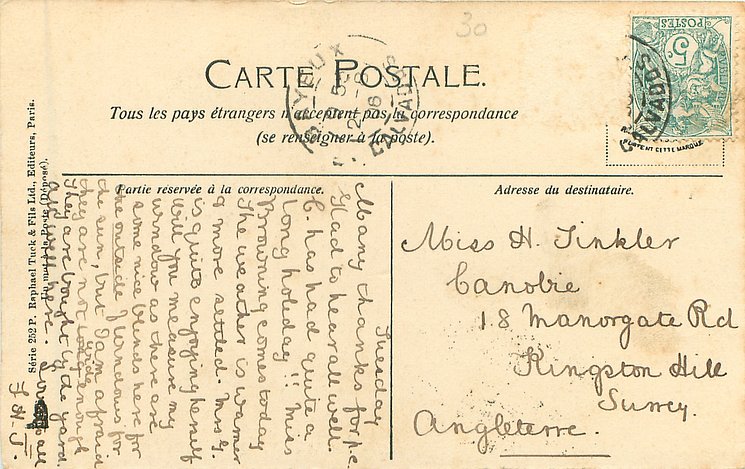 30
CARTE POSTALE.
Tous les pays étrangers n'acceptent pas la correspondance
(se renseigner à la poste).
BAYEUX
CALVADOS
POSTES
5c
CALVADOS
PORTENT CETTE MARQUE
Série 252 P. Raphael Tuck & Fils Ltd., Editeurs, Paris.
Partie reservée à la correspondance.
Adresse du destinataire.
Tuesday
Many thanks for p.c.
Glad to hear all well.
C. has had quite a
long holiday!! Miss
Browning comes today
The weather is warmer
& more settled. Mrs G.
is quite enjoying herself
Will you measure my
window as there are
some nice blinds here for
the outside of windows for
the sun, but I am afraid
they are not long enough
wide
They are bought by the yard.
all
Miss H. Tinkler
Canobie
18 Manorgate Rd
Kingston Hill
Surrey.
Angleterre.